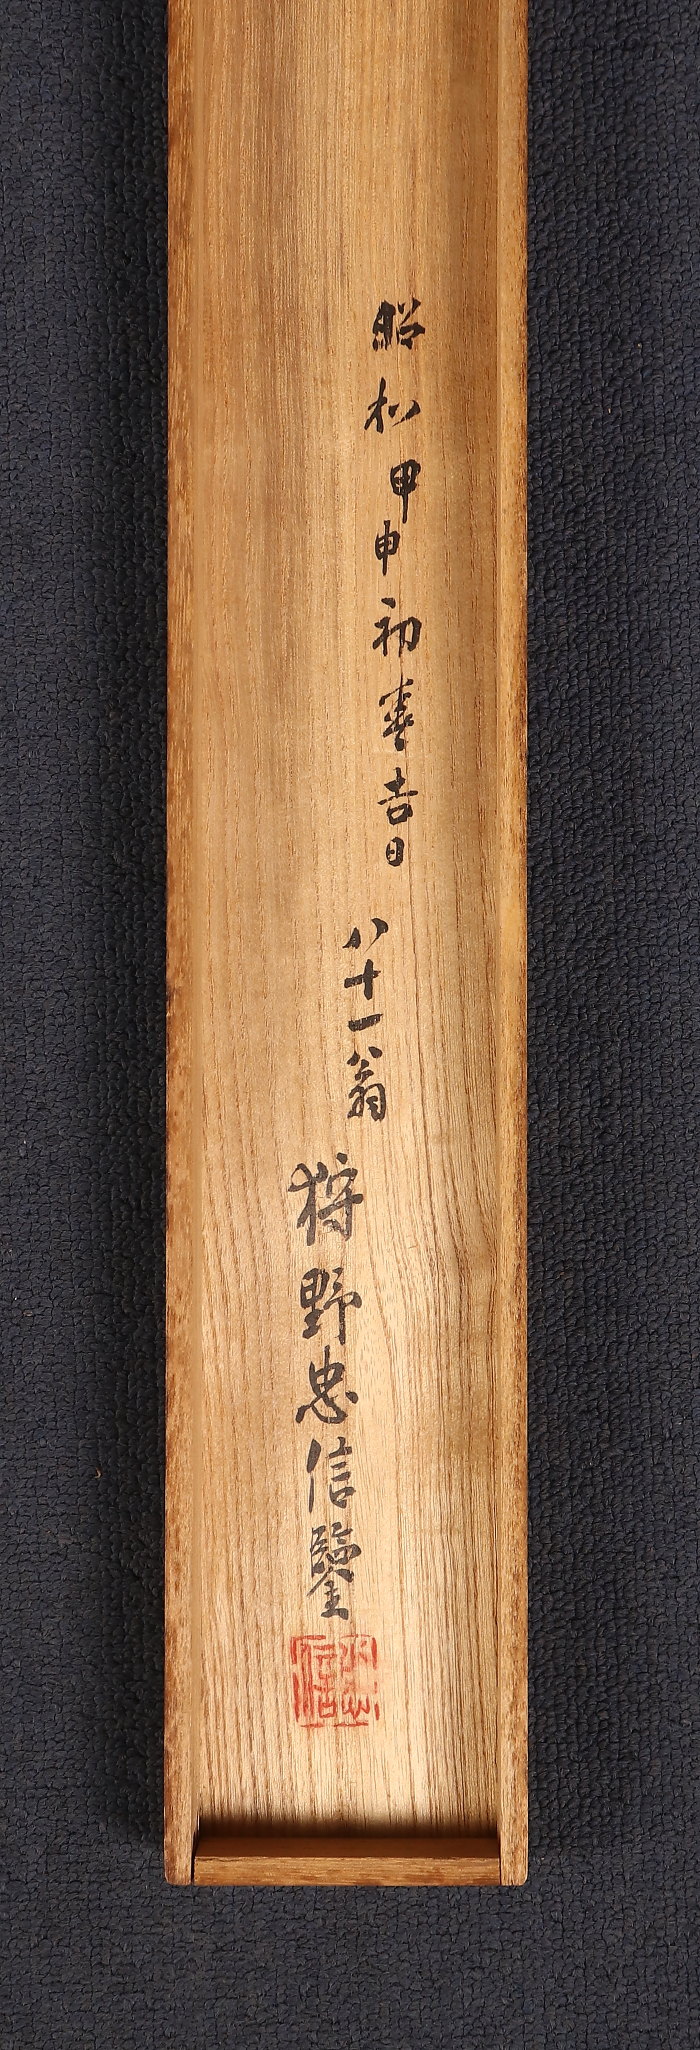 昭和甲申初春吉日
八十一翁
狩野忠信鑒
忠信